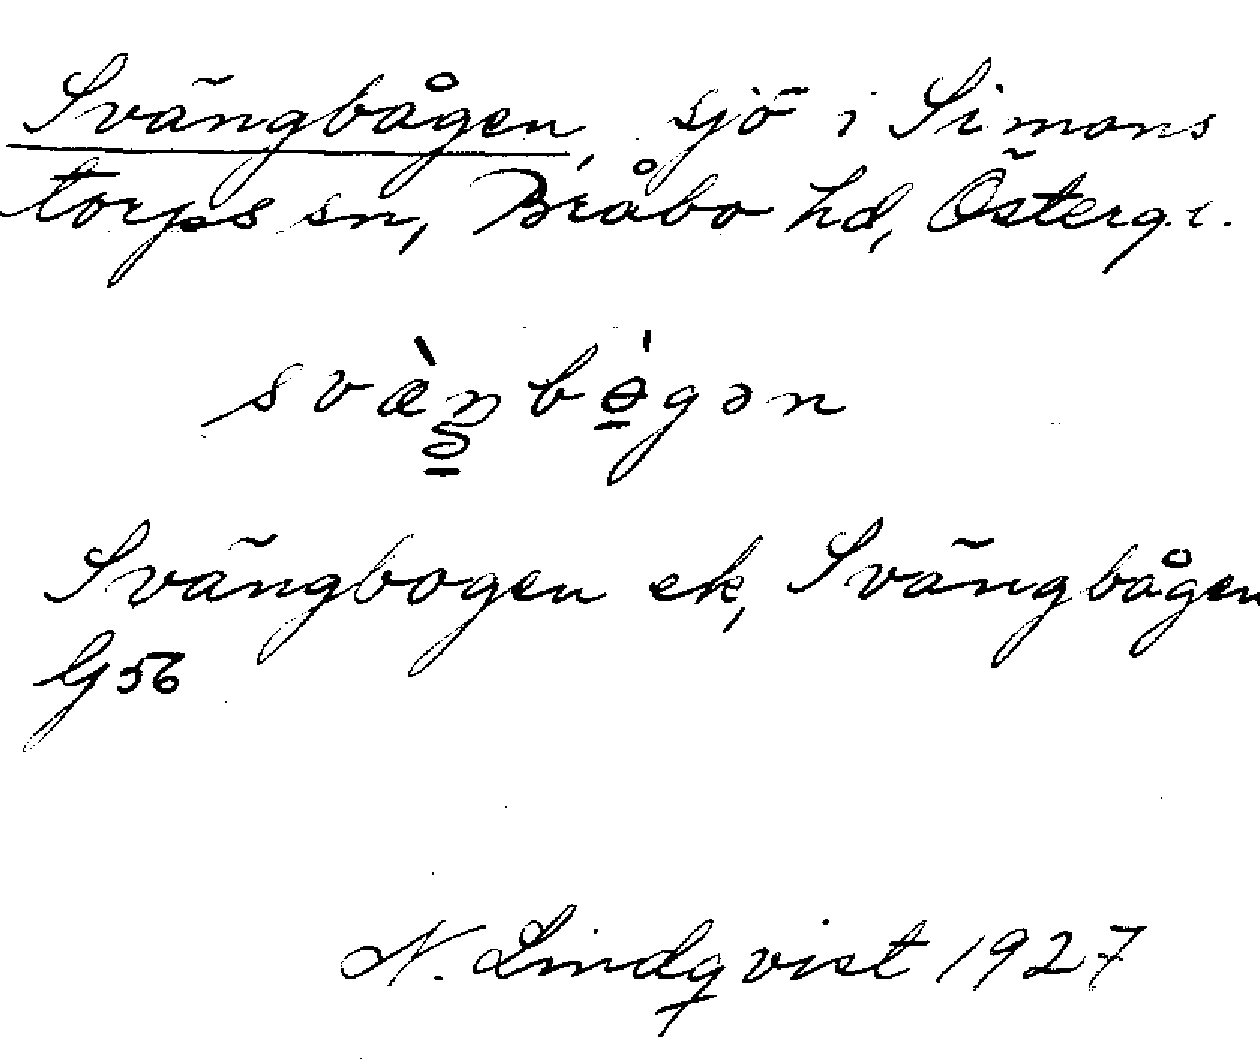 Svängbågen, sjö i Simons
torps sn, Bråbo hd, Östergl.
svæ̀ŋbɵ́gən
Svängbogen ek, Svängbågen
G56
N. Lindqvist 1927